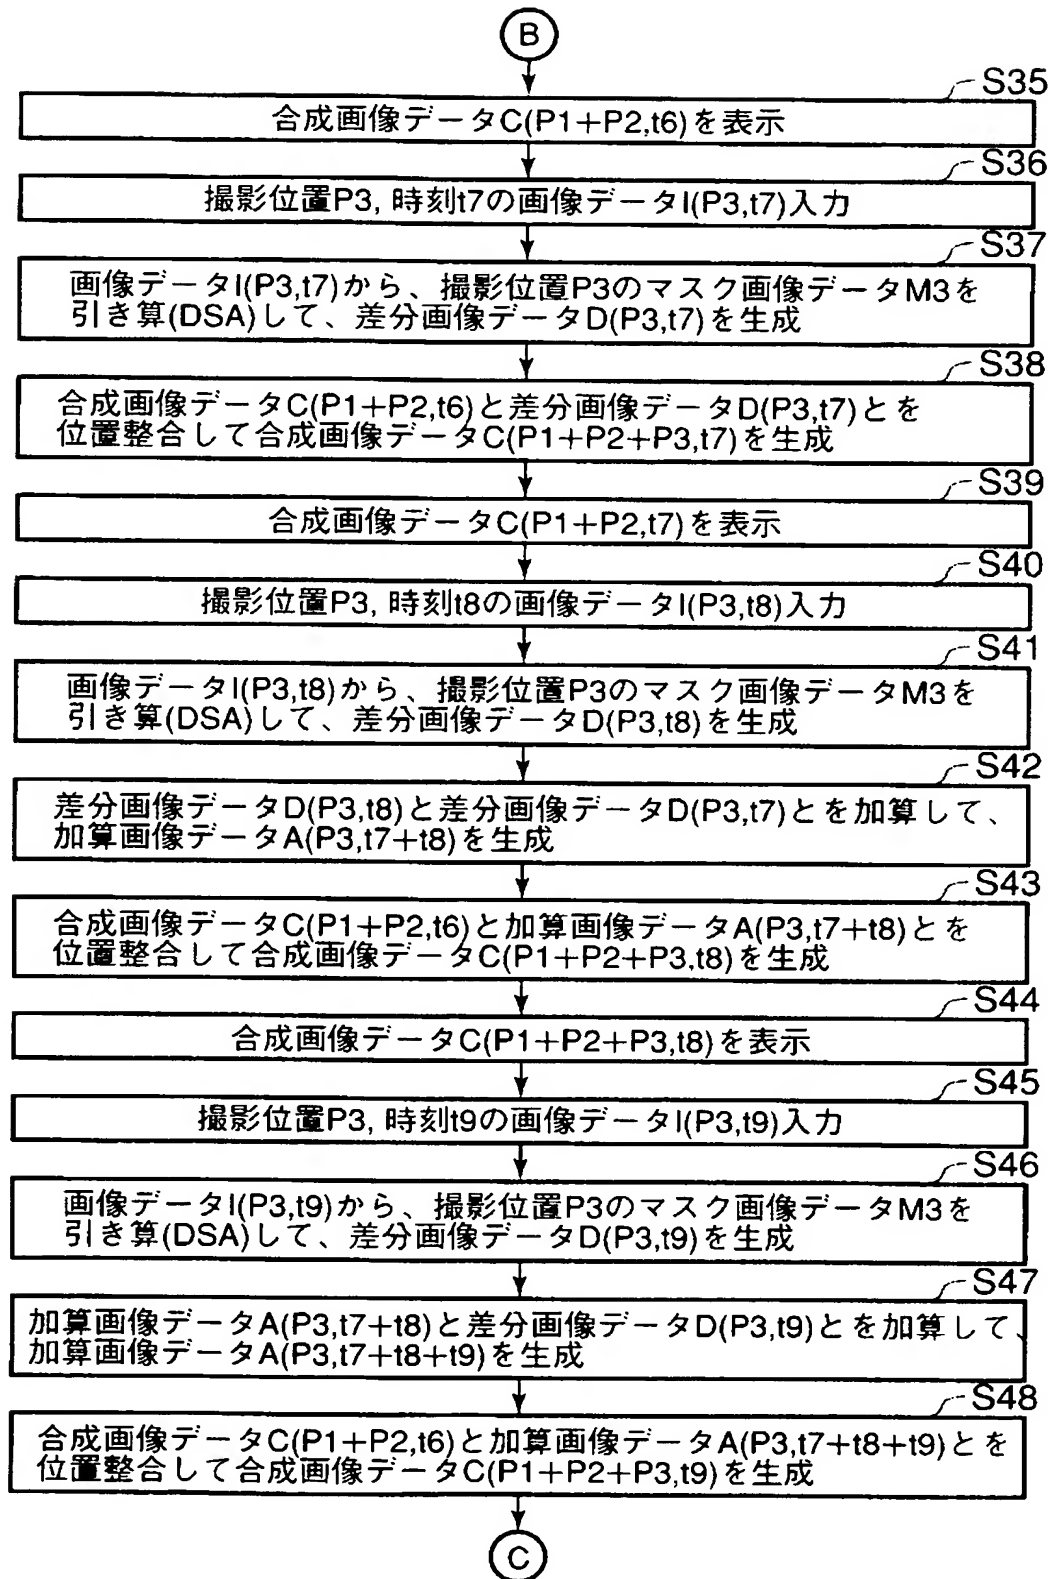 B
S35
合成画像データC(P1+P2,t6)を表示
S36
撮影位置P3, 時刻t7の画像データI(P3,t7)入力
S37
画像データI(P3,t7)から、撮影位置P3のマスク画像データM3を
引き算(DSA)して、差分画像データD(P3,t7)を生成
S38
合成画像データC(P1+P2,t6)と差分画像データD(P3,t7)とを
位置整合して合成画像データC(P1+P2+P3,t7)を生成
S39
合成画像データC(P1+P2,t7)を表示
S40
撮影位置P3, 時刻t8の画像データI(P3,t8)入力
S41
画像データI(P3,t8)から、撮影位置P3のマスク画像データM3を
引き算(DSA)して、差分画像データD(P3,t8)を生成
S42
差分画像データD(P3,t8)と差分画像データD(P3,t7)とを加算して、
加算画像データA(P3,t7+t8)を生成
S43
合成画像データC(P1+P2,t6)と加算画像データA(P3,t7+t8)とを
位置整合して合成画像データC(P1+P2+P3,t8)を生成
S44
合成画像データC(P1+P2+P3,t8)を表示
S45
撮影位置P3, 時刻t9の画像データI(P3,t9)入力
S46
画像データI(P3,t9)から、撮影位置P3のマスク画像データM3を
引き算(DSA)して、差分画像データD(P3,t9)を生成
S47
加算画像データA(P3,t7+t8)と差分画像データD(P3,t9)とを加算して、
加算画像データA(P3,t7+t8+t9)を生成
S48
合成画像データC(P1+P2,t6)と加算画像データA(P3,t7+t8+t9)とを
位置整合して合成画像データC(P1+P2+P3,t9)を生成
C